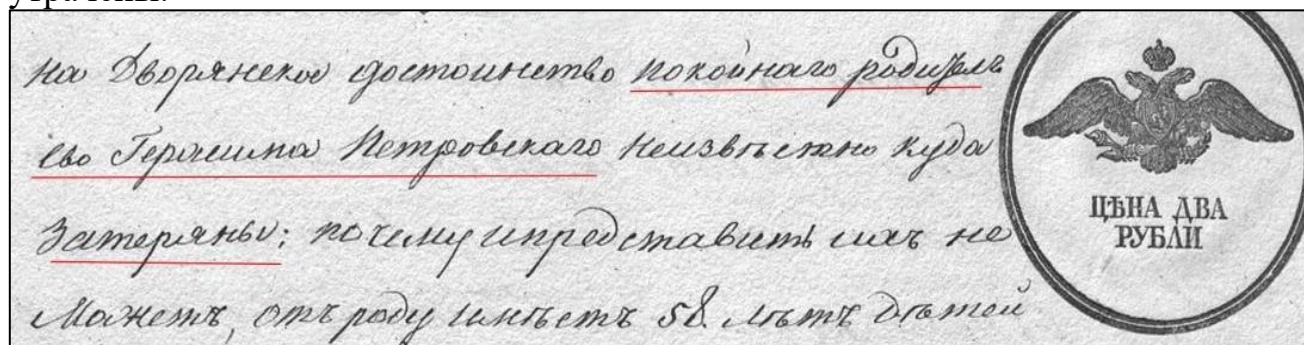 утрачены.
на Дворянское достоинство покойнаго родителя
ево Герасима Петровскаго неизвѣстно куда
Затеряны; почему ипредставить ихъ не
Можетъ, отъ роду имѣетъ 58. лѣтъ дѣтей
ЦѢНА ДВА
РУБЛИ